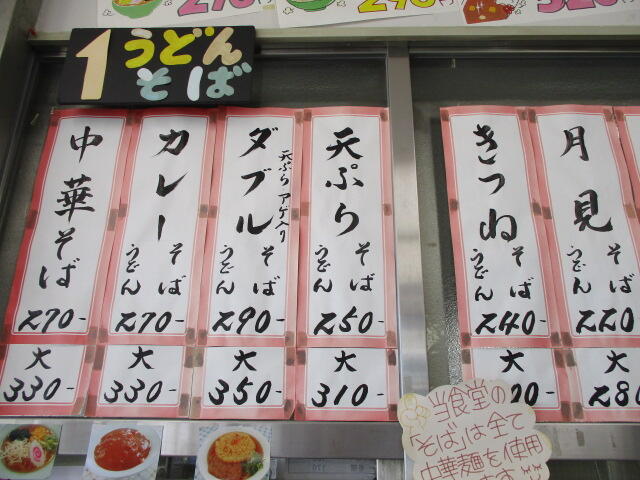 1 うどん
そば
月見
そば
うどん
220-
大
きつね
そば
うどん
240-
大
天ぷら
そば
うどん
250-
大
310-
ダブル
天ぷら アゲ入り
そば
うどん
290-
大
350-
カレー
そば
うどん
270-
大
330-
中華そば
270-
大
330-
当食堂の
「そば」は全て
中華麺を使用